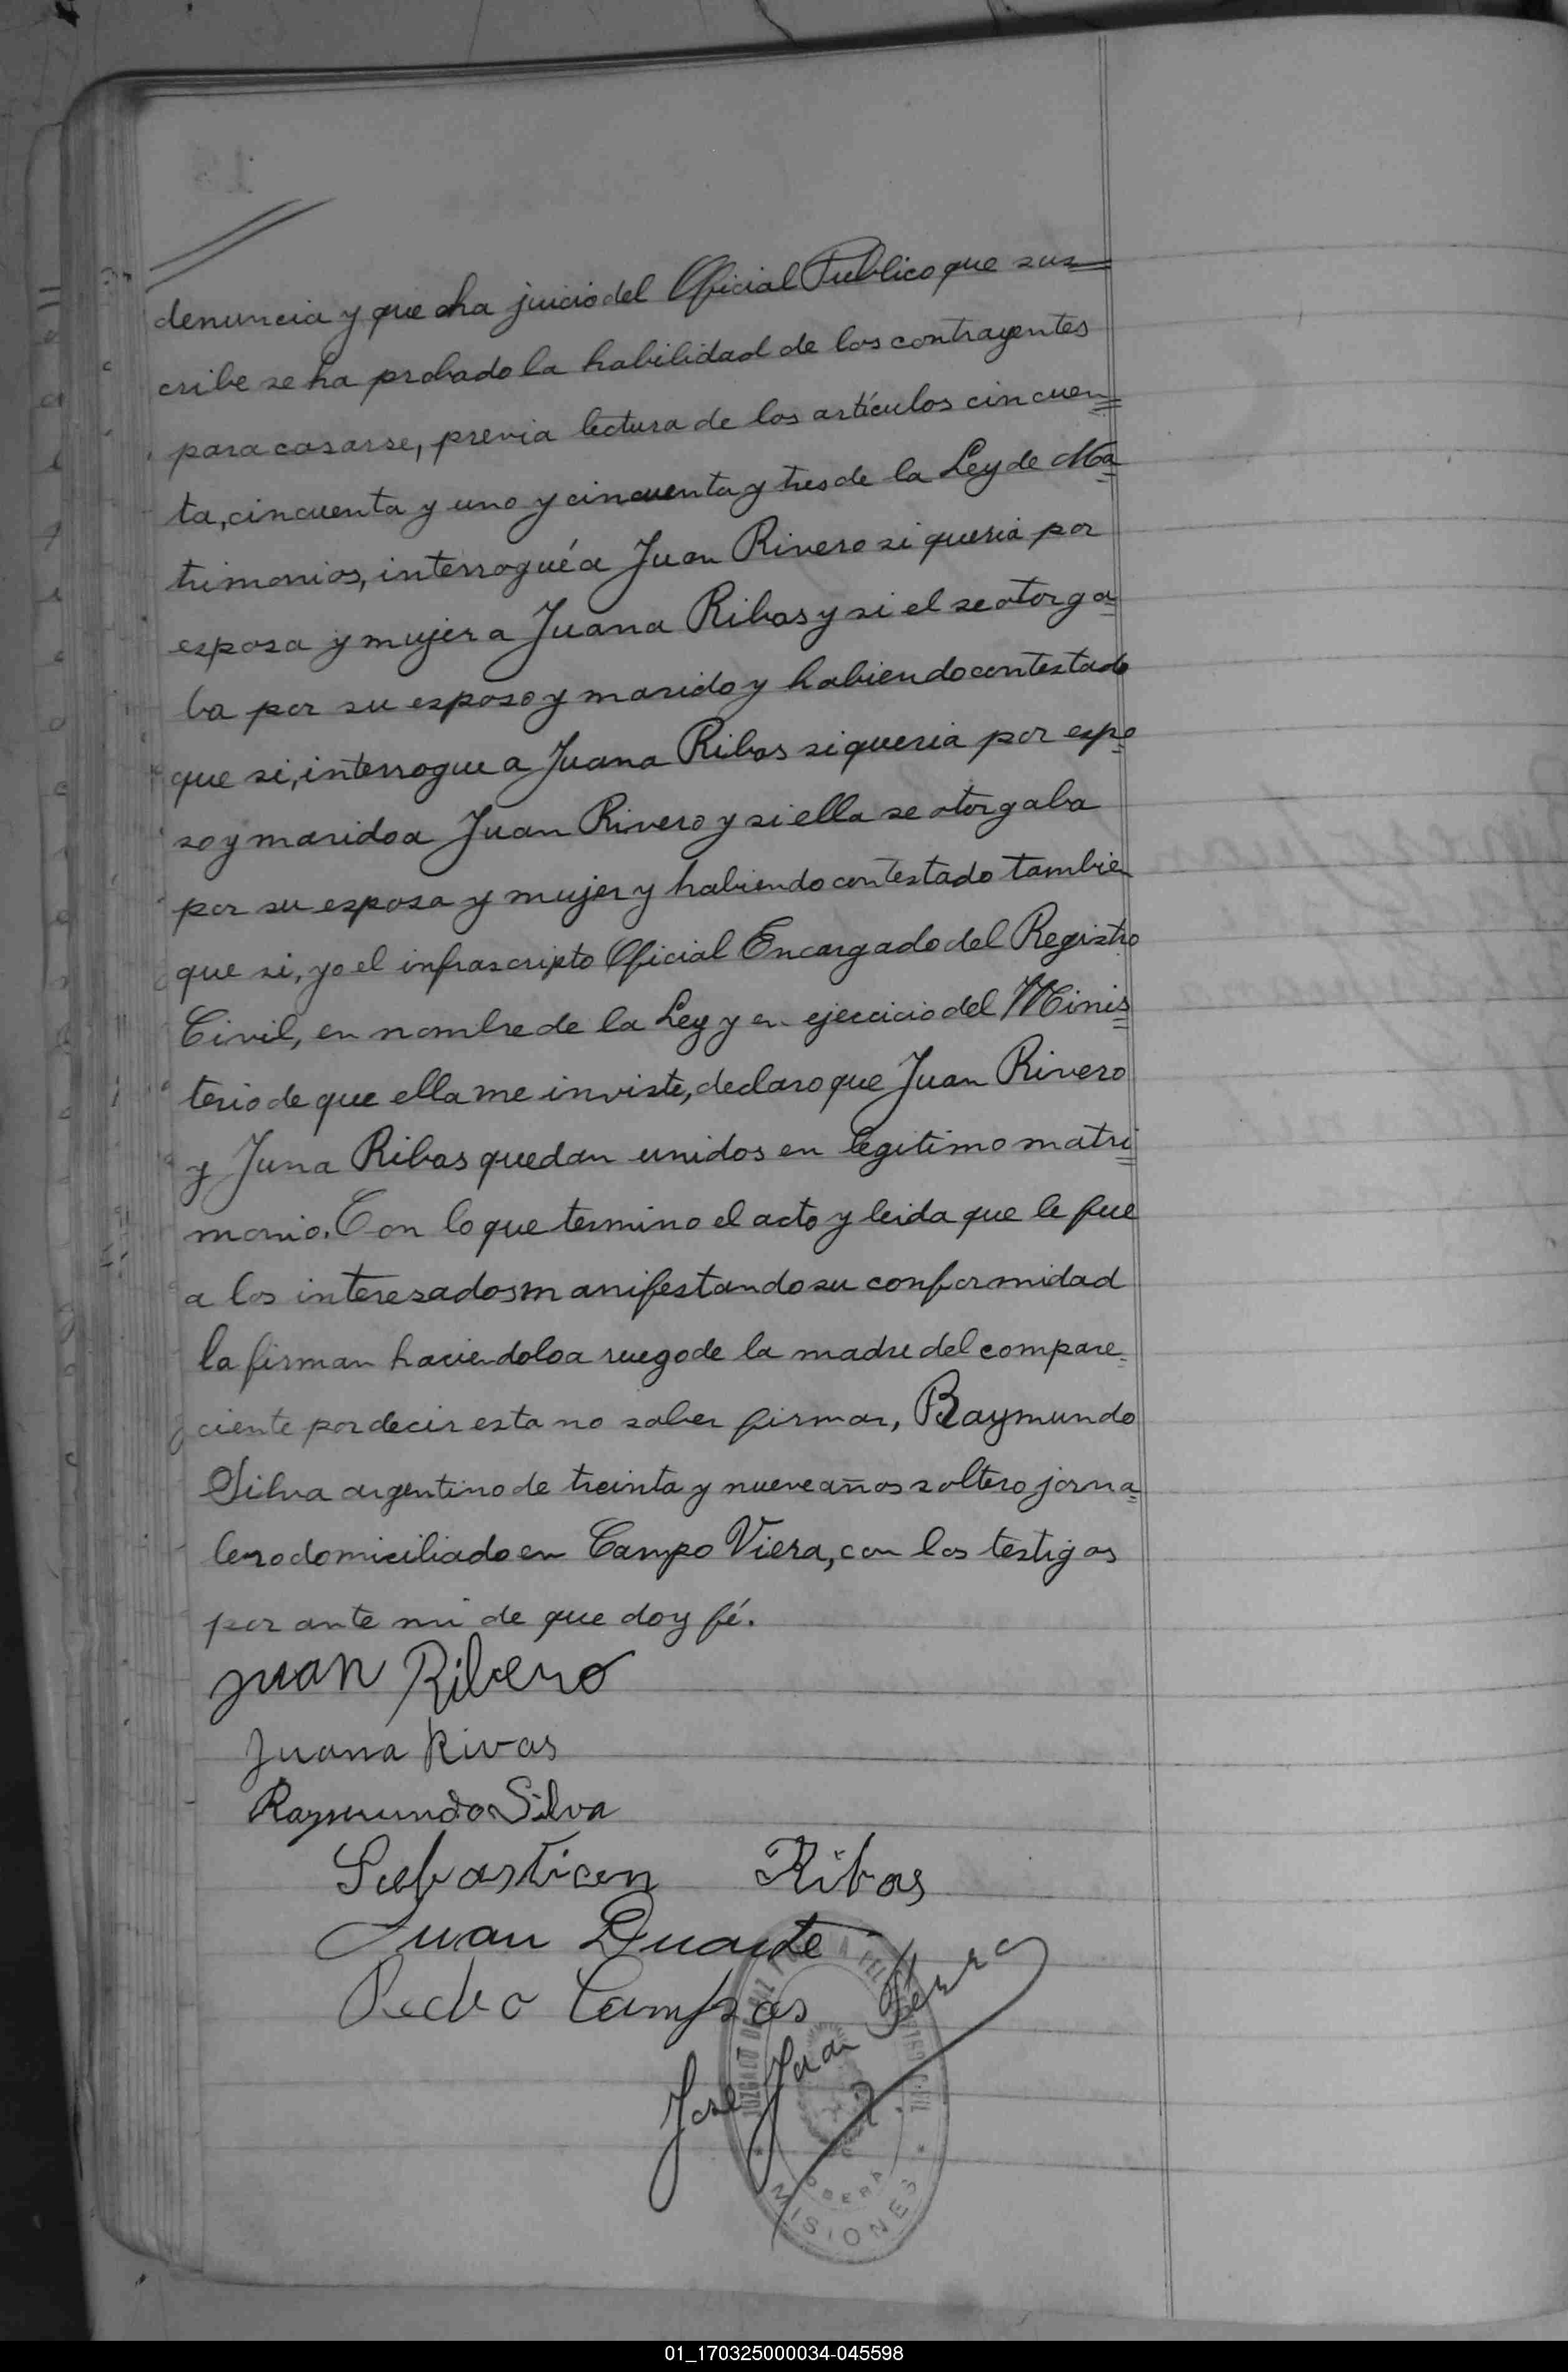 denuncia y que a ha juicio del Oficial Publico que sus=
cribe se ha probado la habilidad de los contrayentes
para casarse, previa lectura de los artículos cincuen=
ta, cincuenta y uno y cincuenta y tres de la Ley de Ma=
trimonios, interrogué a Juan Rivero si queria por
esposa y mujer a Juana Ribas y si el se otorga=
ba por su esposo y marido y habiendo contestado
que si, interrogue a Juana Ribas si queria por espo=
so y marido a Juan Rivero y si ella se otorgaba
por su esposa y mujer y habiendo contestado tambien
que si, yo el infrascripto Oficial Encargado del Registro
Civil, en nombre de la Ley y en ejercicio del Minis=
terio de que ella me inviste, declaro que Juan Rivero
y Juna Ribas quedan unidos en legitimo matri=
monio. Con lo que termino el acto y leida que le fue
a los interesados manifestando su conformidad
la firman haciendolo a ruego de la madre del compare=
ciente por decir esta no saber firmar, Raymundo
Silva argentino de treinta y nueve años soltero jorna=
lero domiciliado en Campo Viera, con los testigos
por ante mi de que doy fé.
Juan Ribero
Juana Rivas
Raymundo Silva
Sebastian Ribas
Juan Duarte
Pedro Campos
Jose Juan
OBERA
MISIONES
01_170325000034-045598